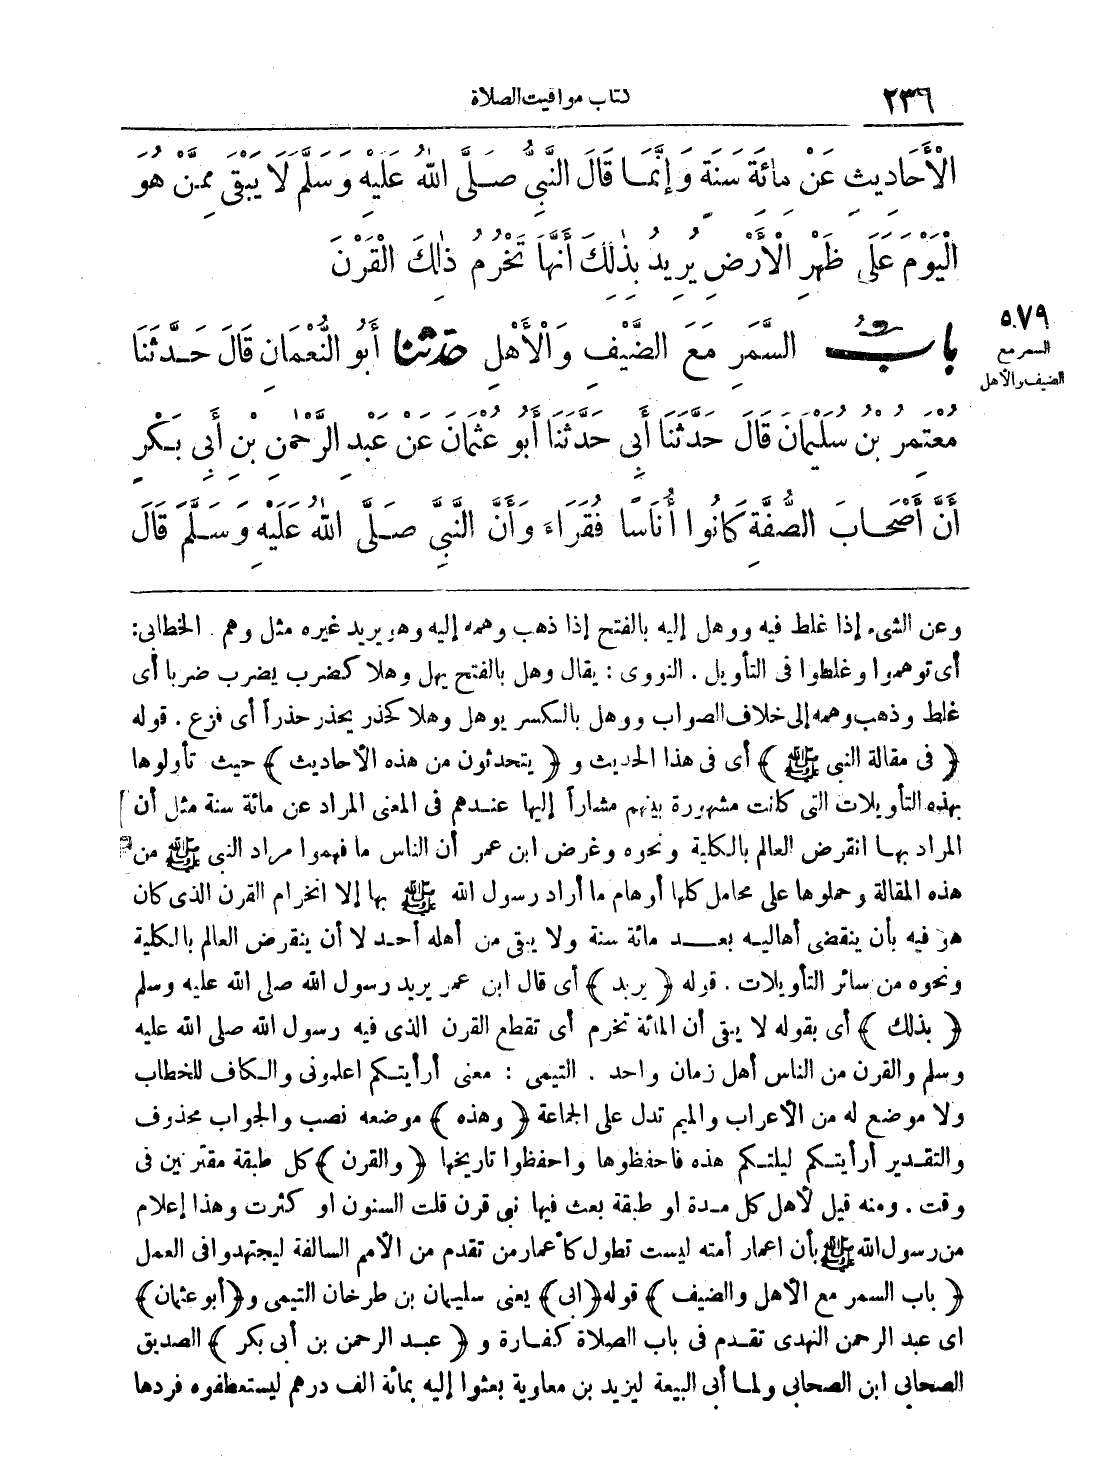 ٢٣٦
كتاب مواقيت الصلاة
الْأَحَادِيثِ عَنْ مِائَةِ سَنَةٍ وَإِنَّمَا قَالَ النَّبِيُّ صَلَّى اللهُ عَلَيْهِ وَسَلَّمَ لَا يَبْقَى مِمَّنْ هُوَ
الْيَوْمَ عَلَى ظَهْرِ الْأَرْضِ يُرِيدُ بِذَٰلِكَ أَنَّهَا تَخْرُمُ ذٰلِكَ الْقَرْنَ
٥٧٩
السمر مع
الضيف والأهل
بابُ السَّمَرِ مَعَ الضَّيْفِ وَالْأَهْلِ حدثنا أَبُو النُّعْمَانِ قَالَ حَدَّثَنَا
مُعْتَمِرُ بْنُ سُلَيْمَانَ قَالَ حَدَّثَنَا أَبِي حَدَّثَنَا أَبُو عُثْمَانَ عَنْ عَبْدِ الرَّحْمٰنِ بْنِ أَبِي بَكْرٍ
أَنَّ أَصْحَابَ الصُّفَّةِ كَانُوا أُنَاسًا فُقَرَاءَ وَأَنَّ النَّبِيَّ صَلَّى اللهُ عَلَيْهِ وَسَلَّمَ قَالَ
وعن الشىء إذا غلط فيه ووهل إليه بالفتح إذا ذهب وهمه إليه وهو يريد غيره مثل وهم . الخطابى:
أى توهموا وغلطوا فى التأويل . النووى : يقال وهل بالفتح يهل وهلا كضرب يضرب ضربا أى
غلط وذهب وهمه إلى خلاف الصواب ووهل بالكسر يوهل وهلا كحذر يحذر حذراً أى فزع . قوله
﴿ فى مقالة النبى ﷺ ﴾ أى فى هذا الحديث و ﴿ يتحدثون من هذه الأحاديث ﴾ حيث تأولوها
بهذه التأويلات التى كانت مشهورة بينهم مشاراً إليها عندهم فى المعنى المراد عن مائة سنة مثل أن
المراد بها انقرض العالم بالكلية ونحوه وغرض ابن عمر أن الناس ما فهموا مراد النبى ﷺ من
هذه المقالة وحملوها على محامل كلها أوهام ما أراد رسول الله ﷺ بها إلا انخرام القرن الذى كان
هو فيه بأن ينقضى أهاليه بعد مائة سنة ولا يبقى من أهله أحد لا أن ينقرض العالم بالكلية
ونحوه من سائر التأويلات . قوله ﴿ يريد ﴾ أى قال ابن عمر يريد رسول الله صلى الله عليه وسلم
﴿ بذلك ﴾ أى بقوله لا يبقى أن المائة تخرم أى تقطع القرن الذى فيه رسول الله صلى الله عليه
وسلم والقرن من الناس أهل زمان واحد . التيمى : معنى أرأيتكم اعلمونى والكاف للخطاب
ولا موضع له من الأعراب والميم تدل على الجماعة ﴿ وهذه ﴾ موضعه نصب والجواب محذوف
والتقدير أرأيتكم ليلتكم هذه فاحفظوها واحفظوا تاريخها ﴿ والقرن ﴾ كل طبقة مقترنين فى
وقت . ومنه قيل لأهل كل مدة او طبقة بعث فيها نبى قرن قلت السنون او كثرت وهذا إعلام
من رسول الله ﷺ بأن اعمار أمته ليست تطول كأعمار من تقدم من الأمم السالفة ليجتهدوا فى العمل
﴿ باب السمر مع الأهل والضيف ﴾ قوله ﴿ ابى ﴾ يعنى سليمان بن طرخان التيمى و﴿ أبو عثمان ﴾
اى عبد الرحمن النهدى تقدم فى باب الصلاة كفارة و ﴿ عبد الرحمن بن أبى بكر ﴾ الصديق
الصحابى ابن الصحابى ولما أبى البيعة ليزيد بن معاوية بعثوا إليه بمائة الف درهم ليستعطفوه فردها